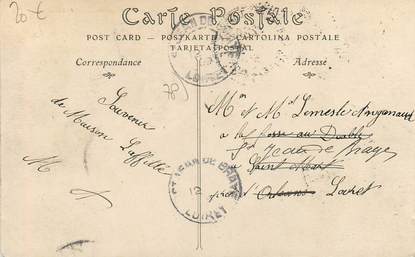 20 €
Carte Postale
POST CARD — POSTKARTE — CARTOLINA POSTALE
TARJETA POSTAL
Correspondance
Adresse
LOIRET
78
Souvenir
de Maison Laffitte
M
Mr et Me Lemesle Anganaud
a la Fosse au Diable
St Jean de Braye
Saint Marc
Orléans Loiret
ST JEAN DE BRAYE
12
LOIRET